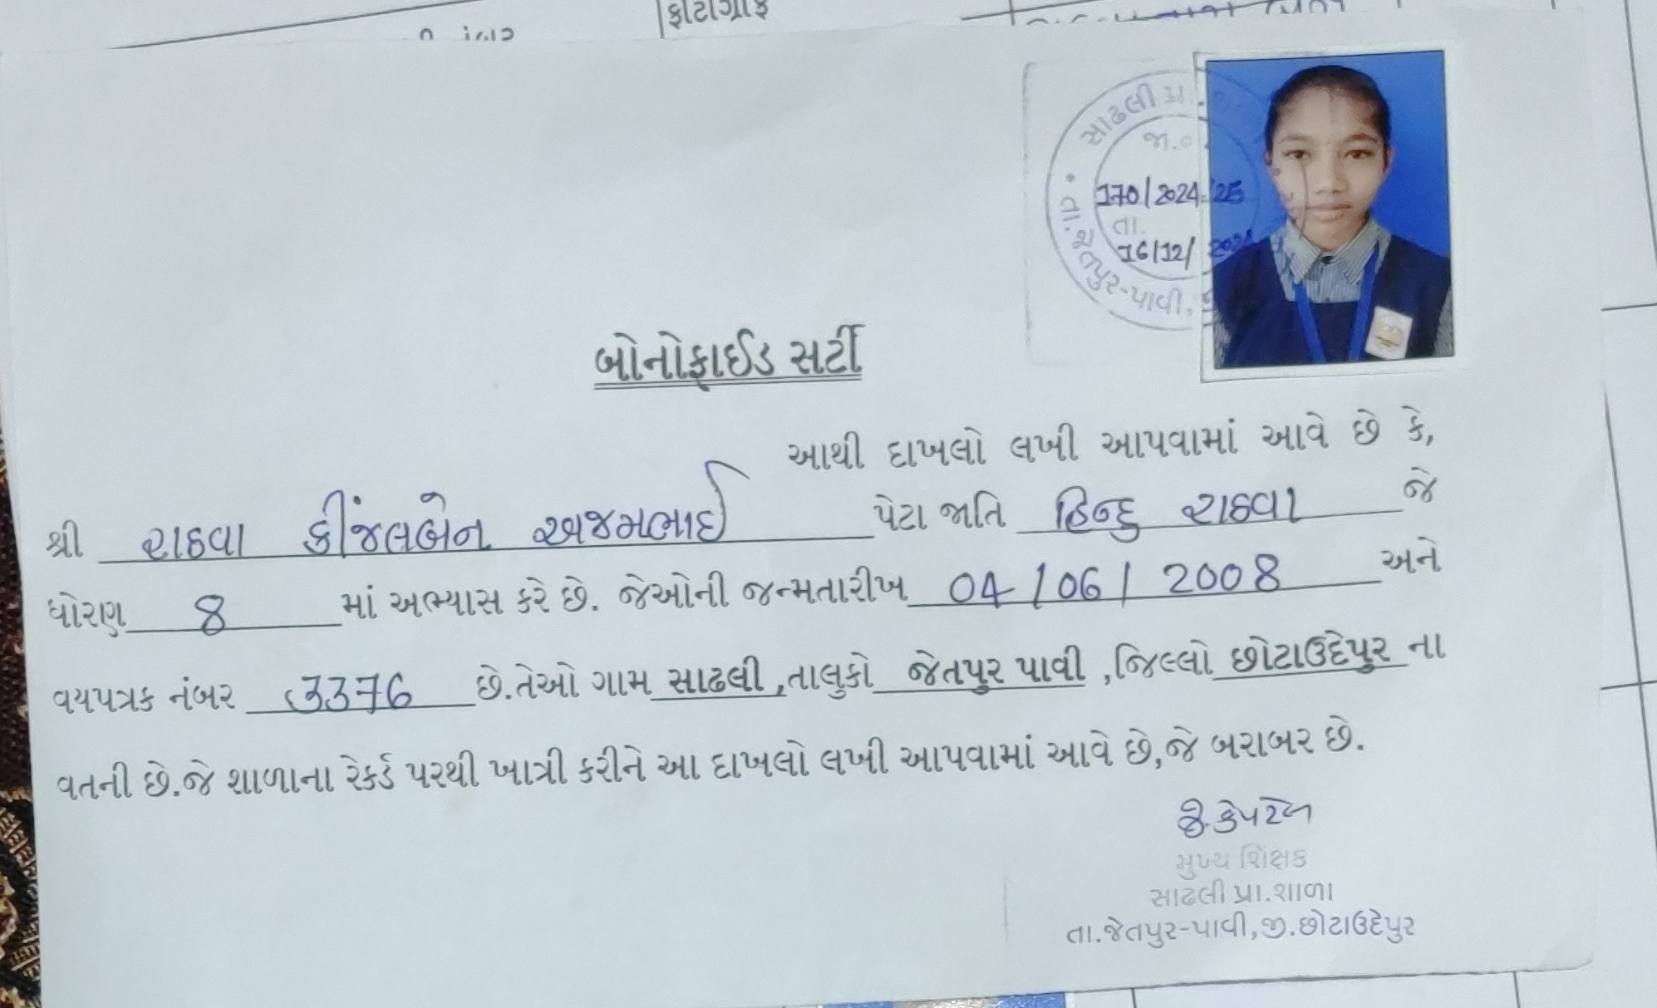 ફોટોગ્રાફ
સાઢલી પ્રા.
જા.નં.
170/2024-25
તા.
16/12/2024
તા.જેતપુર-પાવી,
બોનોફાઈડ સર્ટી
આથી દાખલો લખી આપવામાં આવે છે કે,
શ્રી રાઠવા કીંજલબેન અજમભાઈ પેટા જાતિ હિન્દુ રાઠવા જે
ધોરણ 8 માં અભ્યાસ કરે છે. જેઓની જન્મતારીખ 04/06/2008 અને
વયપત્રક નંબર 3376 છે.તેઓ ગામ સાઢલી ,તાલુકો જેતપુર પાવી ,જિલ્લો છોટાઉદેપુર ના
વતની છે.જે શાળાના રેકર્ડ પરથી ખાત્રી કરીને આ દાખલો લખી આપવામાં આવે છે,જે બરાબર છે.
મુખ્ય શિક્ષક
સાઢલી પ્રા.શાળા
તા.જેતપુર-પાવી,જી.છોટાઉદેપુર